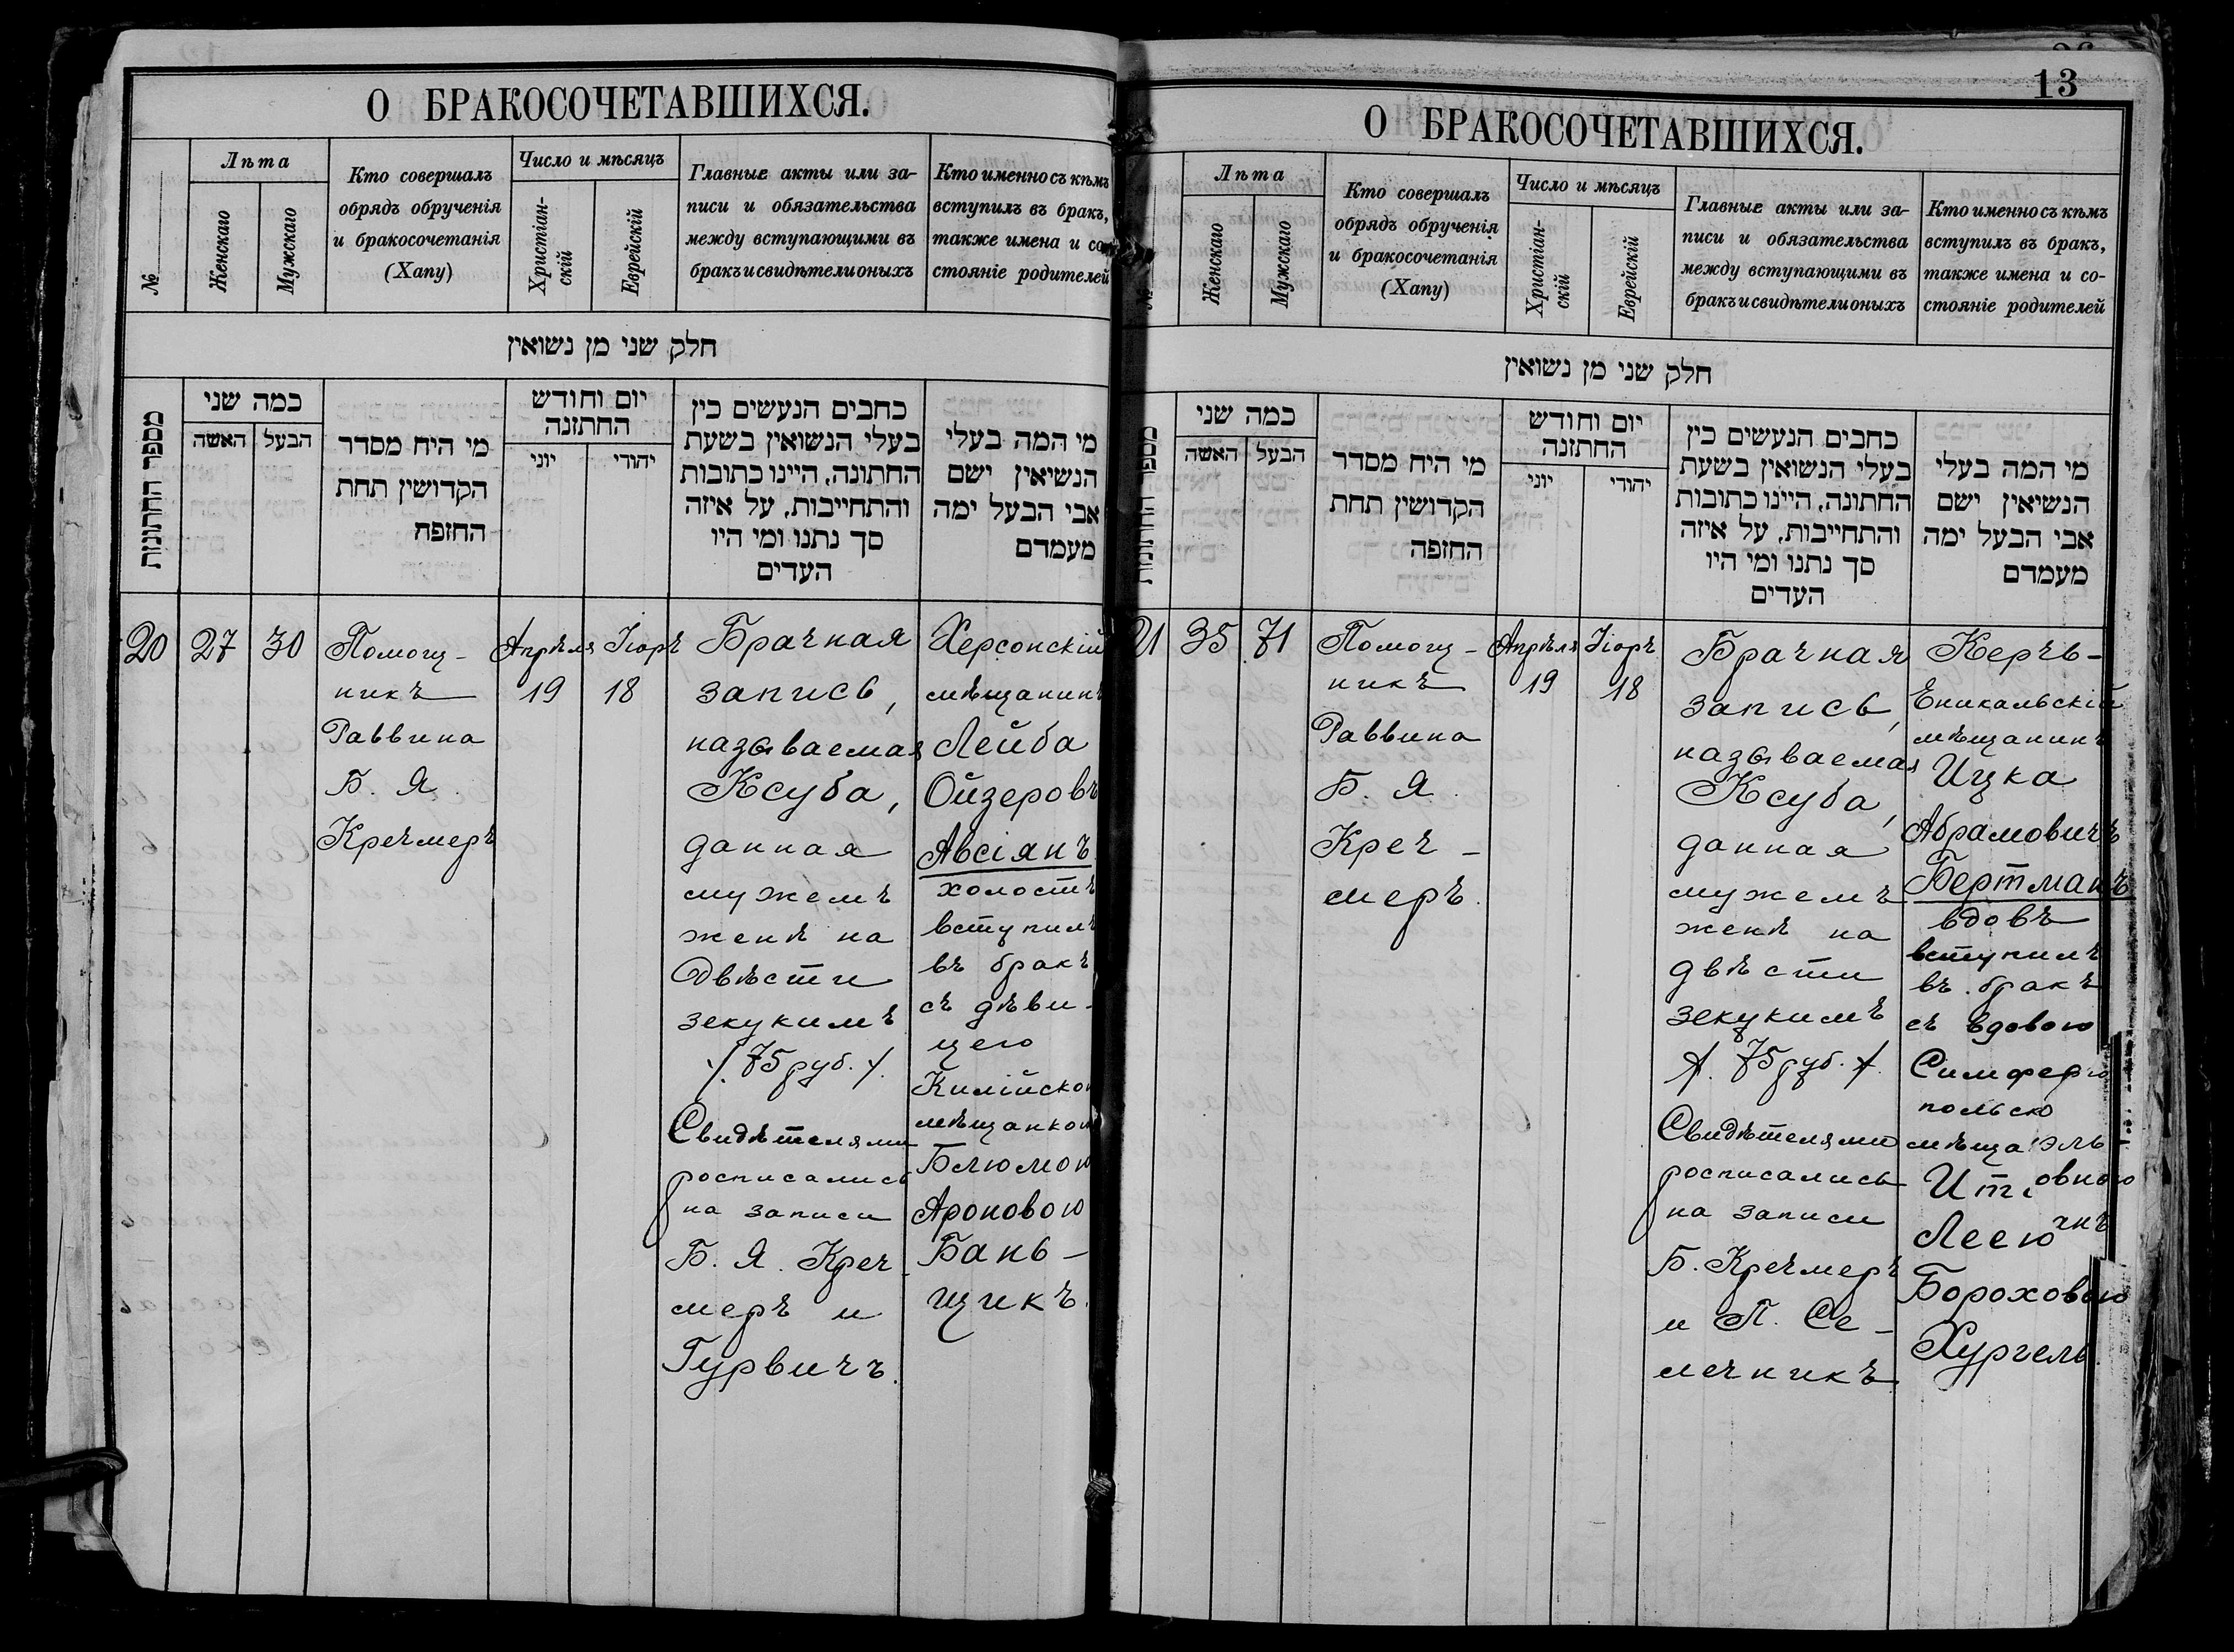 О БРАКОСОЧЕТАВШИХСЯ.
№
Лѣта
Женскаго
Мужскаго
Кто совершалъ
обрядъ обрученія
и бракосочетанія
(Хапу)
Число и мѣсяцъ
Христіан-
скій
Еврейскій
Главные акты или за-
писи и обязательства
между вступающими въ
бракъ и свидѣтели оныхъ
Кто именно съ кѣмъ
вступилъ въ бракъ,
также имена и со-
стояніе родителей
חלק שני מן נשואין
מספר החתונות
כמה שני
האשה
הבעל
מי היח מסדר
הקדושין תחת
החזפח
יום וחודש
החתזנה
יוני
יהודי
כחבים הנעשים כין
בעלי הנשואין בשעת
החתונה, היינו כתובות
והתחייבות, על איזה
סך נתנו ומי היו
העדים
מי המה בעלי
הנשיאין ישם
אבי הבעל ימה
מעמדם
20
27
30
Помощ-
никъ
Раввина
Б. Я.
Кречмеръ
Апрѣля
19
Іiоръ
18
Брачная
запись,
называемая
Ксуба,
данная
мужемъ
женѣ на
двѣсти
зекукимъ
/. 75 руб. /.
Свидѣтелями
росписались
на записи
Б. Я. Креч-
меръ и
Гурвичъ.
Херсонскій
мѣщанинъ
Лейба
Ойзеровъ
Авсіянъ
холостъ
вступилъ
въ бракъ
съ дѣви-
цею
Килійскою
мѣщанкою
Блюмою
Ароновою
Бань-
щикъ.
13
О БРАКОСОЧЕТАВШИХСЯ.
№
Лѣта
Женскаго
Мужскаго
Кто совершалъ
обрядъ обрученія
и бракосочетанія
(Хапу)
Число и мѣсяцъ
Христіан-
скій
Еврейскій
Главные акты или за-
писи и обязательства
между вступающими въ
бракъ и свидѣтели оныхъ
Кто именно съ кѣмъ
вступилъ въ бракъ,
также имена и со-
стояніе родителей
חלק שני מן נשואין
מספר החתונות
כמה שני
האשה
הבעל
מי היח מסדר
הקדושין תחת
החזפה
יום וחודש
החתזנה
יוני
יהודי
כחבים הנעשים כין
בעלי הנשואין בשעת
החתונה, היינו כתובות
והתחייבות, על איזה
סך נתנו ומי היו
העדים
מי המה בעלי
הנשיאין ישם
אבי הבעל ימה
מעמדם
21
35
71
Помощ-
никъ
Раввина
Б. Я.
Креч-
меръ.
Апрѣля
19
Іiоръ
18
Брачная
запись,
называемая
Ксуба,
данная
мужемъ
женѣ на
двѣсти
зекукимъ
/. 75 руб. /.
Свидѣтелями
росписались
на записи
Б. Кречмеръ
и П. Се-
мечникъ
Керчь-
Еникальскій
мѣщанинъ
Ицка
Абрамовичъ
Бертманъ
вдовъ
вступилъ
въ бракъ
съ вдовою
Симферо
польско
мѣща
Лею
Бороховою
Хургель.